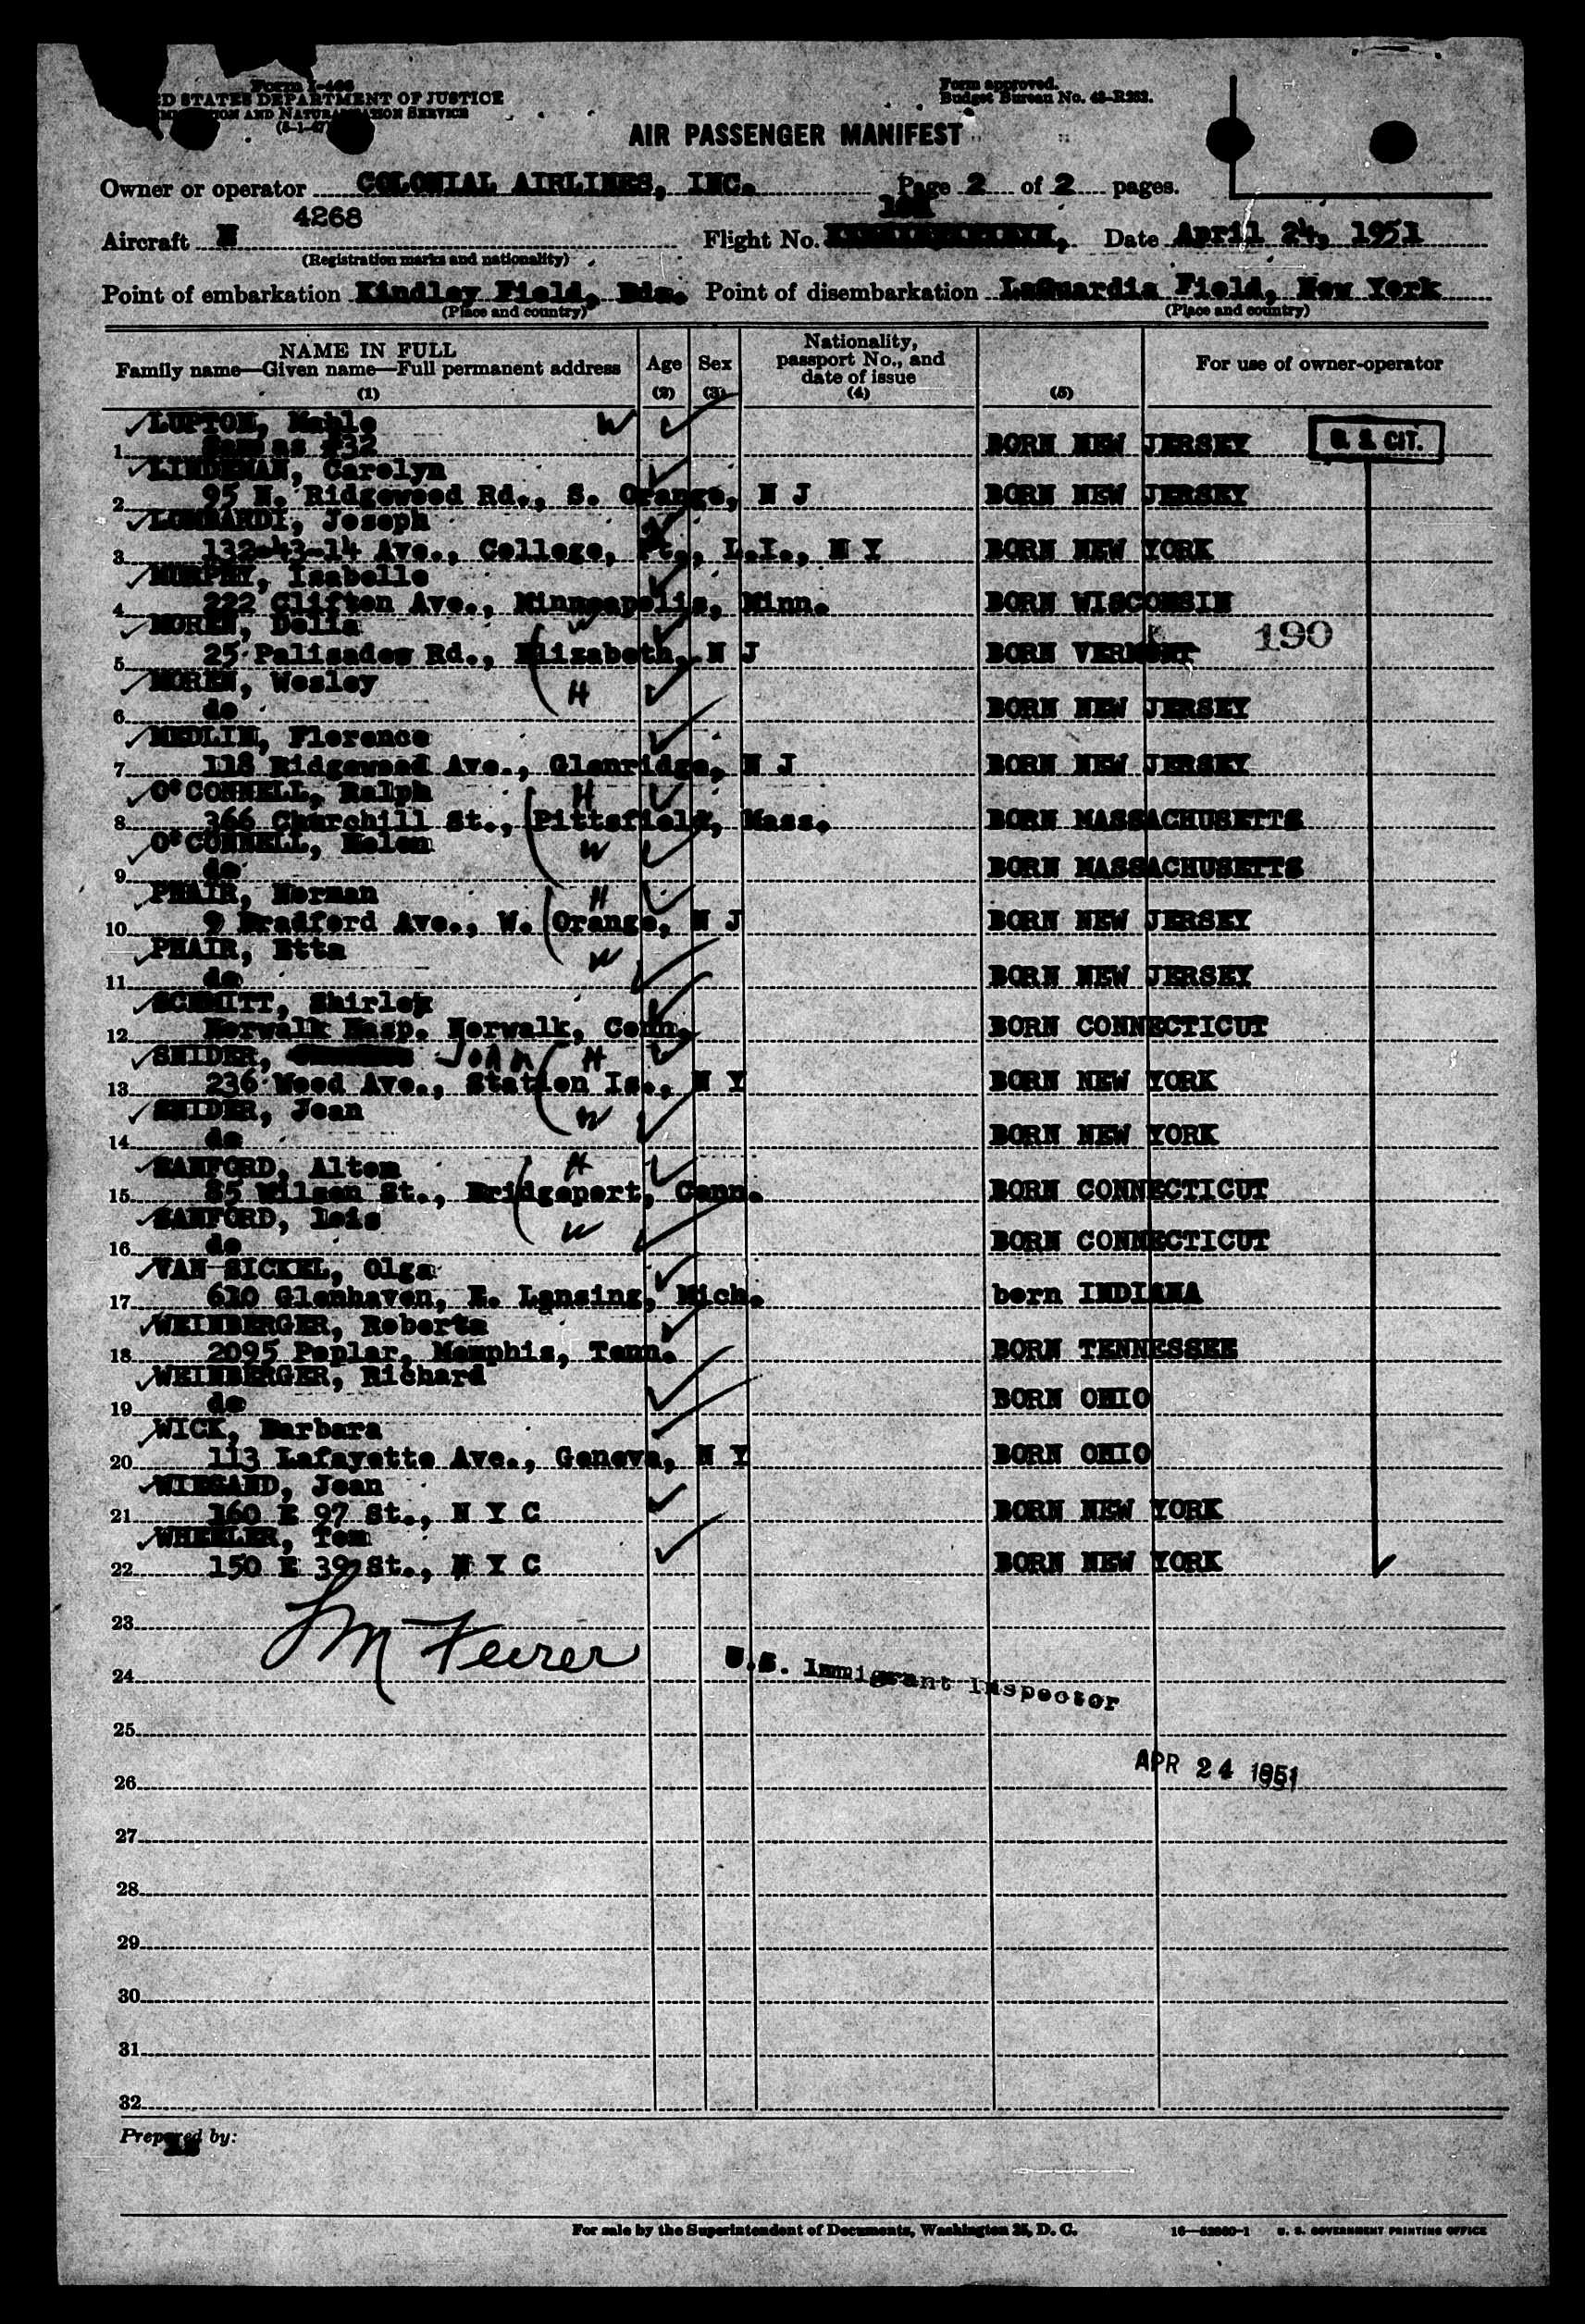 Form I-466
D STATES DEPARTMENT OF JUSTICE
ION AND NATURALIZATION SERVICE
(5-1-47)
Form approved.
Budget Bureau No. 43-R252.
AIR PASSENGER MANIFEST
Owner or operator COLONIAL AIRLINES, INC. Page 2 of 2 pages.
Aircraft N 4268 Flight No. Date April 24, 1951
(Registration marks and nationality)
Point of embarkation Kindley Field, Bda. Point of disembarkation LaGuardia Field, New York
(Place and country) (Place and country)
NAME IN FULL
Family name—Given name—Full permanent address
(1)
Age
(2)
Sex
(3)
Nationality,
passport No., and
date of issue
(4)
(5)
For use of owner-operator
LUPTON, Mable W
1 Sam as #32 BORN NEW JERSEY U. S. CIT.
LINDEMAN, Carolyn
2 95 N. Ridgewood Rd., S. Orange, N J BORN NEW JERSEY
LOMBARDI, Joseph
3 132-43-14 Ave., College, Pt., L.I., N Y BORN NEW YORK
MURPHY, Isabelle
4 222 Clifton Ave., Minneapolis, Minn. BORN WISCONSIN
MOREN, Delia W
190
5 25 Palisades Rd., Elizabeth, N J BORN VERMONT
MOREN, Wesley H
6 do BORN NEW JERSEY
MEDLIN, Florence
7 118 Ridgewood Ave., Glenridge, N J BORN NEW JERSEY
O'CONNELL, Ralph H
8 366 Churchill St., Pittsfield, Mass. BORN MASSACHUSETTS
O'CONNELL, Helen W
9 do BORN MASSACHUSETTS
PHAIR, Norman H
10 9 Bradford Ave., W. Orange, N J BORN NEW JERSEY
PHAIR, Etta W
11 do BORN NEW JERSEY
SCHMITT, Shirley
12 Norwalk Hosp. Norwalk, Conn. BORN CONNECTICUT
SNIDER, JOHN H
13 236 Wood Ave., Station Is., N Y BORN NEW YORK
SNIDER, Jean W
14 do BORN NEW YORK
SANFORD, Alton H
15 85 Wilson St., Bridgeport, Conn. BORN CONNECTICUT
SANFORD, Lois W
16 do BORN CONNECTICUT
VAN SICKEL, Olga
17 610 Glenhaven, E. Lansing, Mich. born INDIANA
WEINBERGER, Roberta
18 2095 Poplar, Memphis, Tenn. BORN TENNESSEE
WEINBERGER, Richard
19 do BORN OHIO
WICK, Barbara
20 113 Lafayette Ave., Geneva, N Y BORN OHIO
WIEGAND, Jean
21 160 E 97 St., N Y C BORN NEW YORK
WHEELER, Tom
22 150 E 39 St., N Y C BORN NEW YORK
23
L M Feurer
24 U.S. Immigrant Inspector
25
26 APR 24 1951
27
28
29
30
31
32
Prepared by:
For sale by the Superintendent of Documents, Washington 25, D. C. U. S. GOVERNMENT PRINTING OFFICE